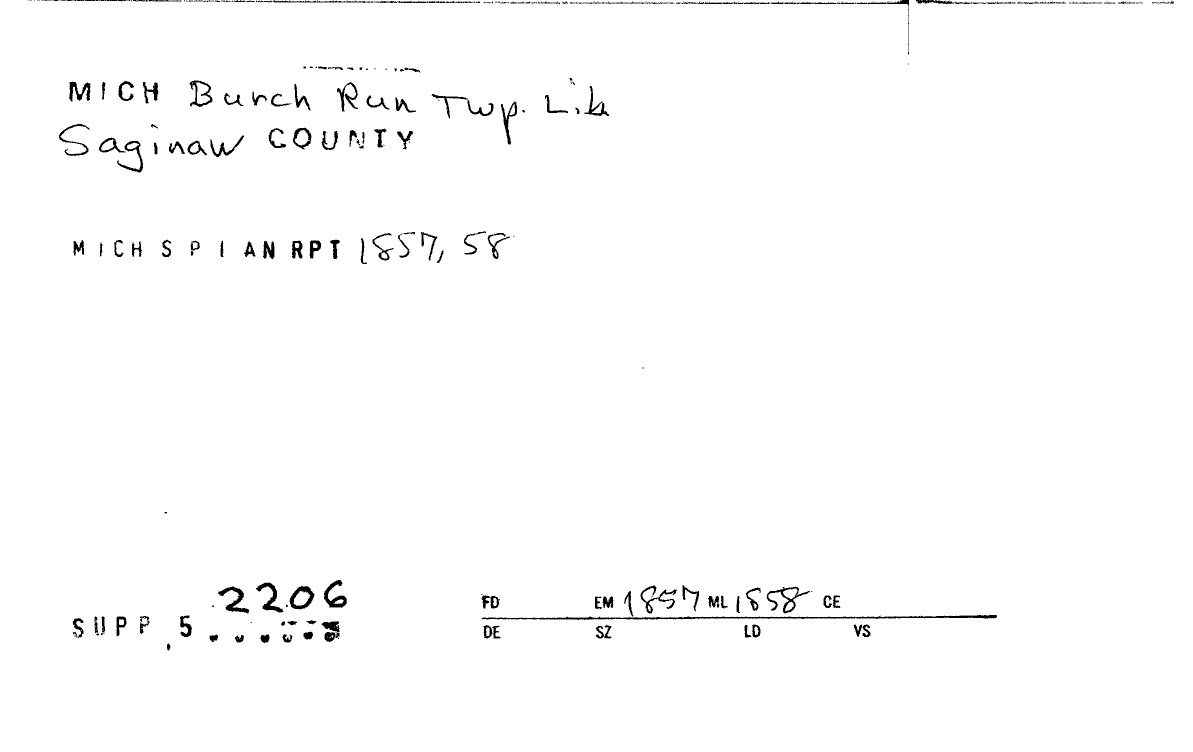 MICH Burch Run Twp. Lib
Saginaw COUNTY
MICH S P I AN RPT 1857, 58
2206
SUPP, 5
FD EM 1857 ML 1858 CE
DE SZ LD VS